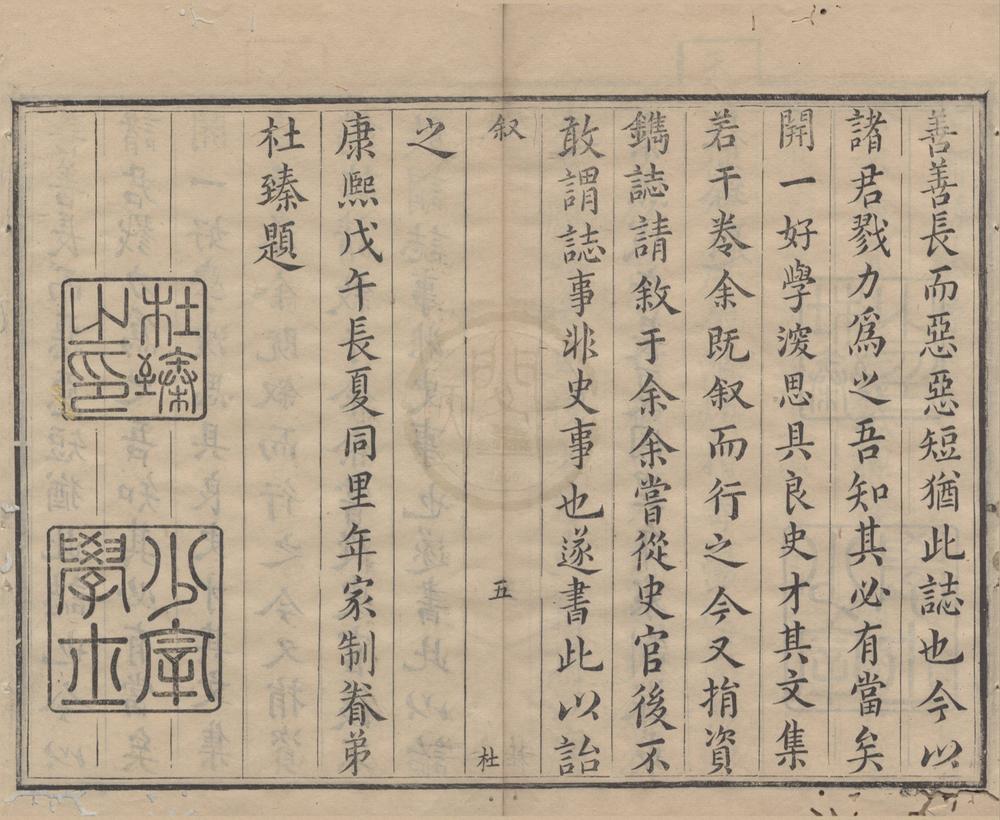 善善長而惡惡短猶此誌也今以
諸君戮力爲之吾知其必有當矣
開一好學湥思具良史才其文集
若干卷余既叙而行之今又捐資
鐫誌請敘于余余嘗從史官後不
敢謂誌事非史事也遂書此以詒
之
叙
五
杜
康熙戊午長夏同里年家制眷弟
杜臻題
杜臻之印
少宰學士